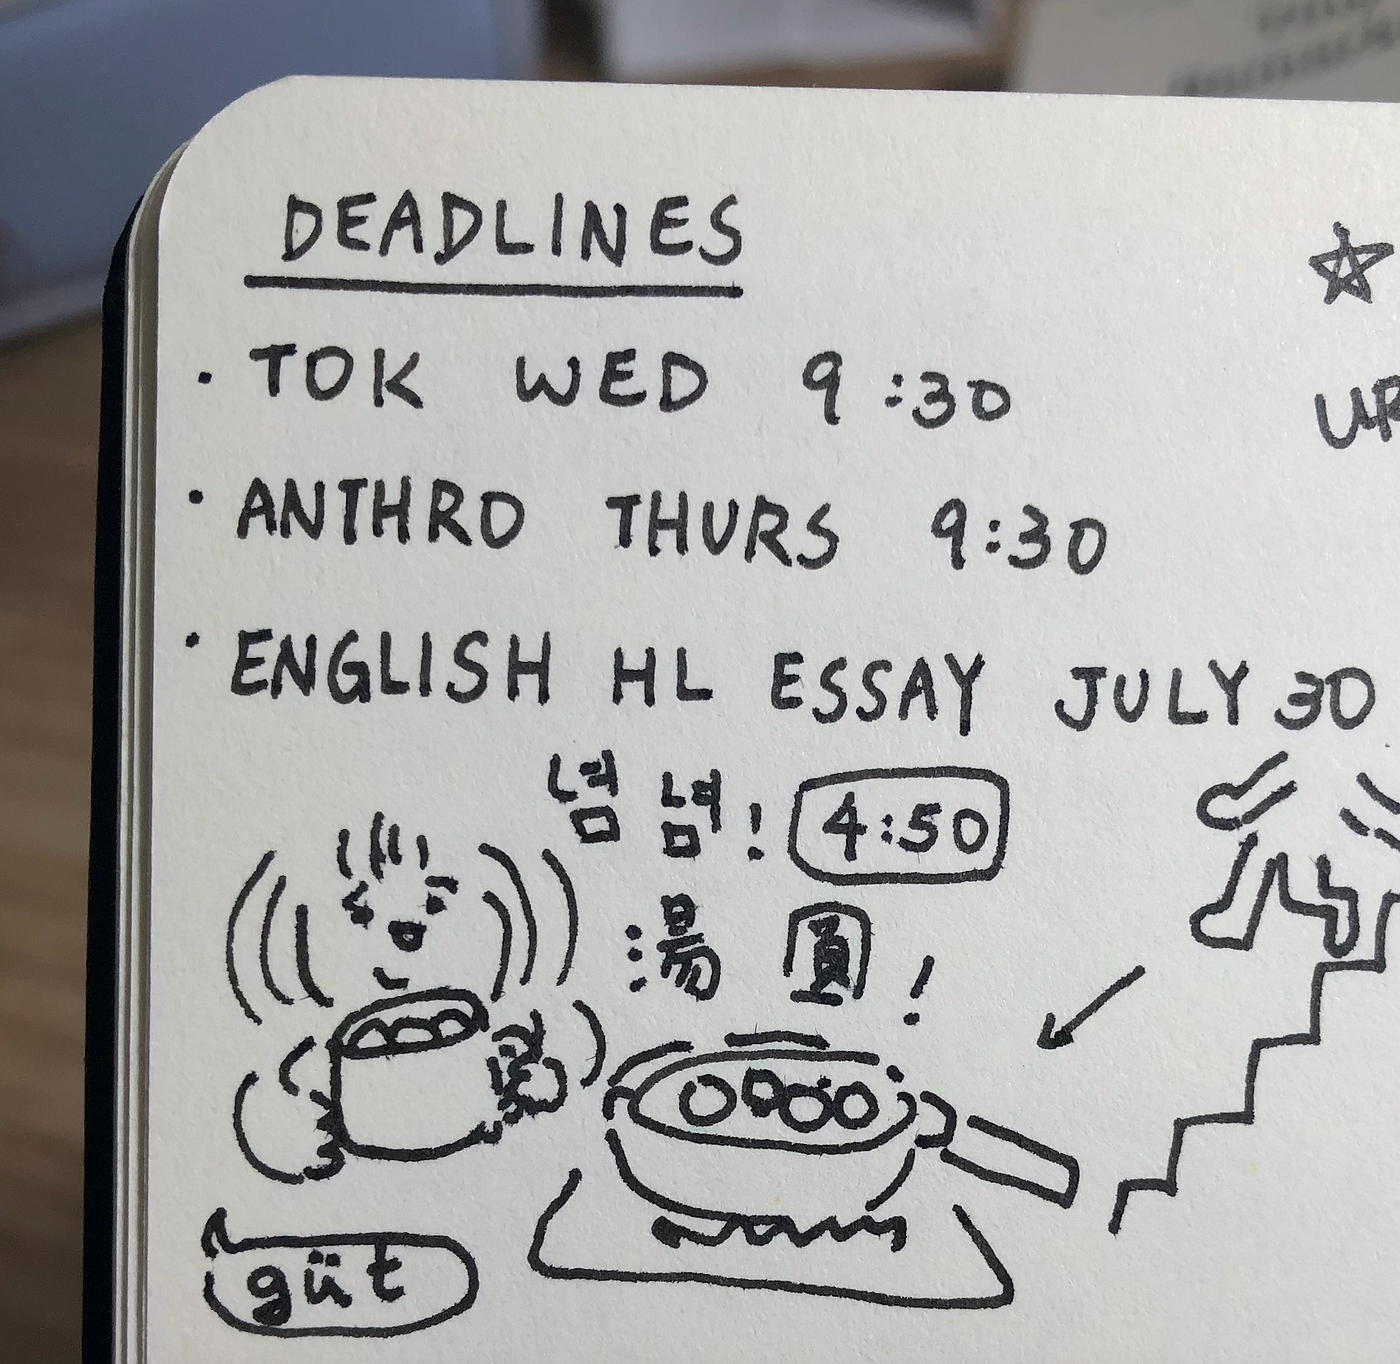 DEADLINES
· TOK WED 9:30
· ANTHRO THURS 9:30
· ENGLISH HL ESSAY JULY 30
냠 냠! 4:50
湯圓!
güt